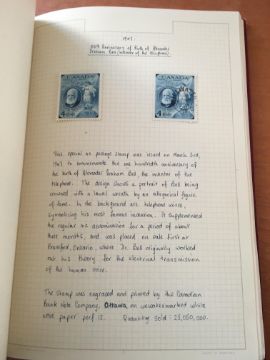 1947.
100th Anniversary of Birth of Alexander
Graham Bell (inventor of the telephone).
CANADA CANADA
This special 4c postage stamp was issued on March 3rd,
1947 to commemorate the one hundredth anniversary
of the birth of Alexander Graham Bell, the inventor of the
telephone. The design shows a portrait of Bell being
crowned with a laurel wreath by an allegorical figure
of Fame. In the background are telephone wires,
symbolising his most famous invention. It supplemented
the regular 4c denomination for a period of about
three months, and was placed on sale first at
Brantford, Ontario, where Dr. Bell originally worked
out his theory for the electrical transmission
of the human voice.
The stamp was engraved and printed by the Canadian
Bank Note Company, Ottawa, on unwatermarked white
wove paper perf 12. Quantity sold: